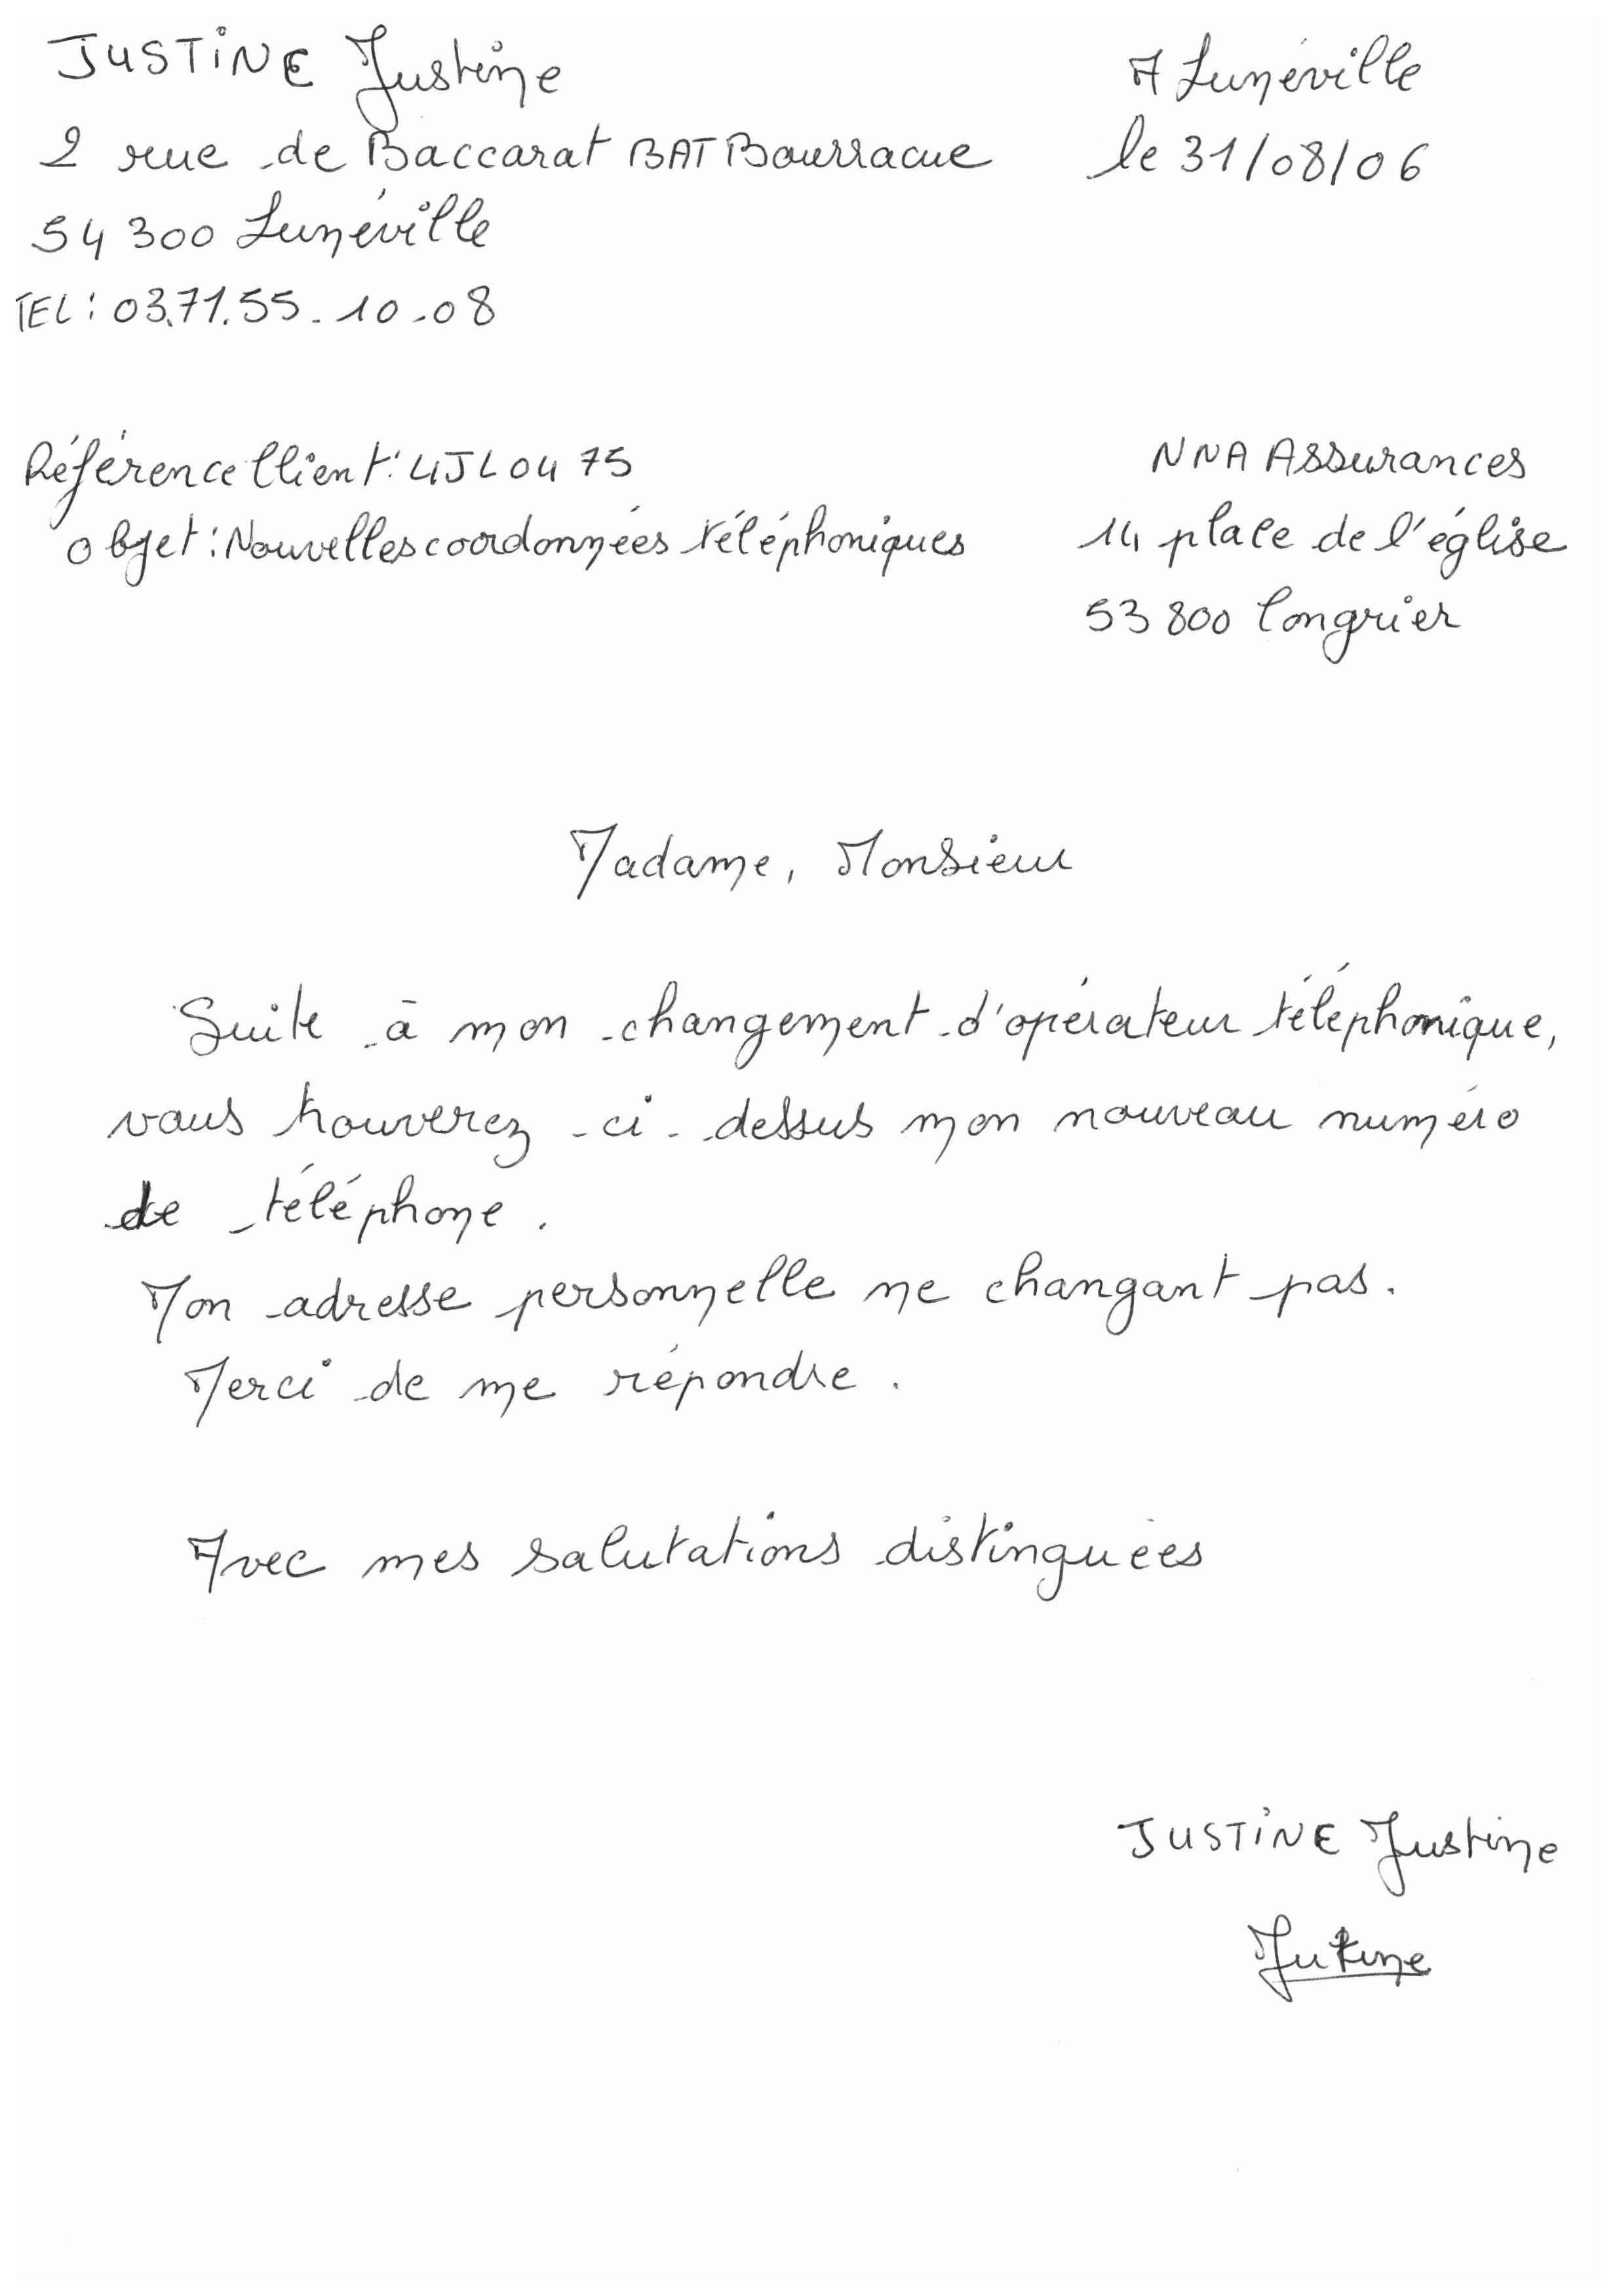 JUSTINE Justine
2 rue de Baccarat BAT Bourracue
54 300 Lunéville
TEL : 03.71.55.10.08
A Lunéville
le 31/08/06
Référence Client : 4JL0475
objet : Nouvelles coordonnées téléphoniques
NNA Assurances
14 place de l'église
53 800 Congrier
Madame, Monsieur
Suite à mon changement d'opérateur téléphonique,
vous trouverez ci-dessus mon nouveau numéro
de téléphone.
Mon adresse personnelle ne changant pas.
Merci de me répondre.
Avec mes salutations distinguées
JUSTINE Justine